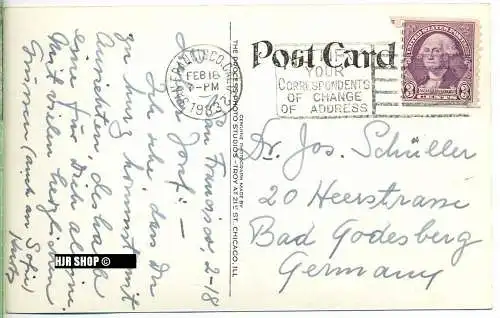 Post Card
SAN FRANCISCO, CALIF.
FEB 18
PM
1933
YOUR
CORRESPONDENTS
OF CHANGE
OF ADDRESS
UNITED STATES POSTAGE
3 3
CENTS
San Francisco, 2-18
Lieber Josti! –
Ich sehe, das Du
zu kurz kommst mit
Ansichten, deshalb
eine für Dich alleine.
Mit vielen herzlichen
Grüssen (auch an Sofie)
Dr. Jos. Schüller
20 Heerstrasse
Bad Godesberg
Germany
GENUINE PHOTOGRAPH MADE BY
THE PHOTO STUDIOS - TROY AT 21ST ST. CHICAGO, ILL.
HJR SHOP ©